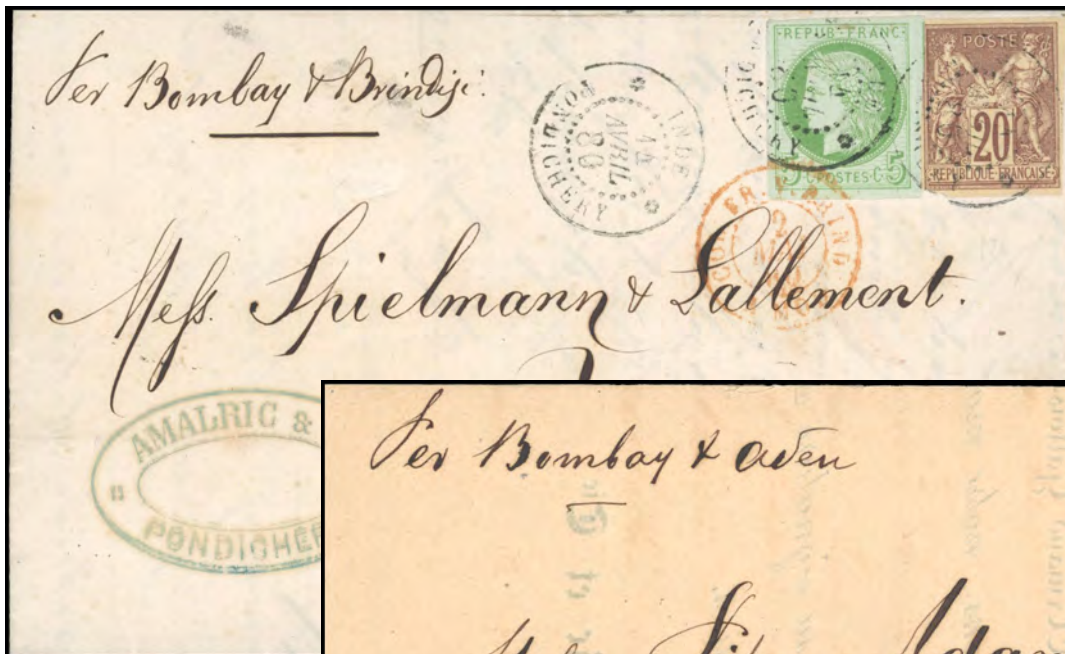 Per Bombay & Brindisi
INDE
14
AVRIL
80
PONDICHERY
REPUB·FRANC·
5 C·POSTES·C· 5
POSTE
20
REPUBLIQUE FRANCAISE
PONDICHERY
COL. FR. V. BRIND
2
MAI
Mess. Spielmann & Lallement.
AMALRIC &
PONDICHER
Per Bombay & Aden
Adam